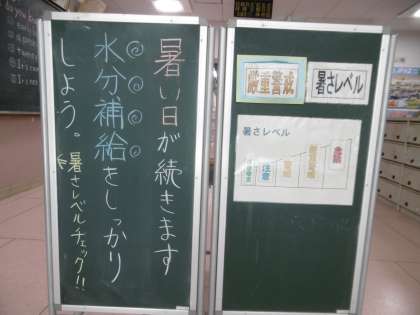 暑い日が続きます
水分補給をしっかり
しょう。
暑さレベルチェック!!
厳重警戒
暑さレベル
暑さレベル
注意
警戒
厳重警戒
危険